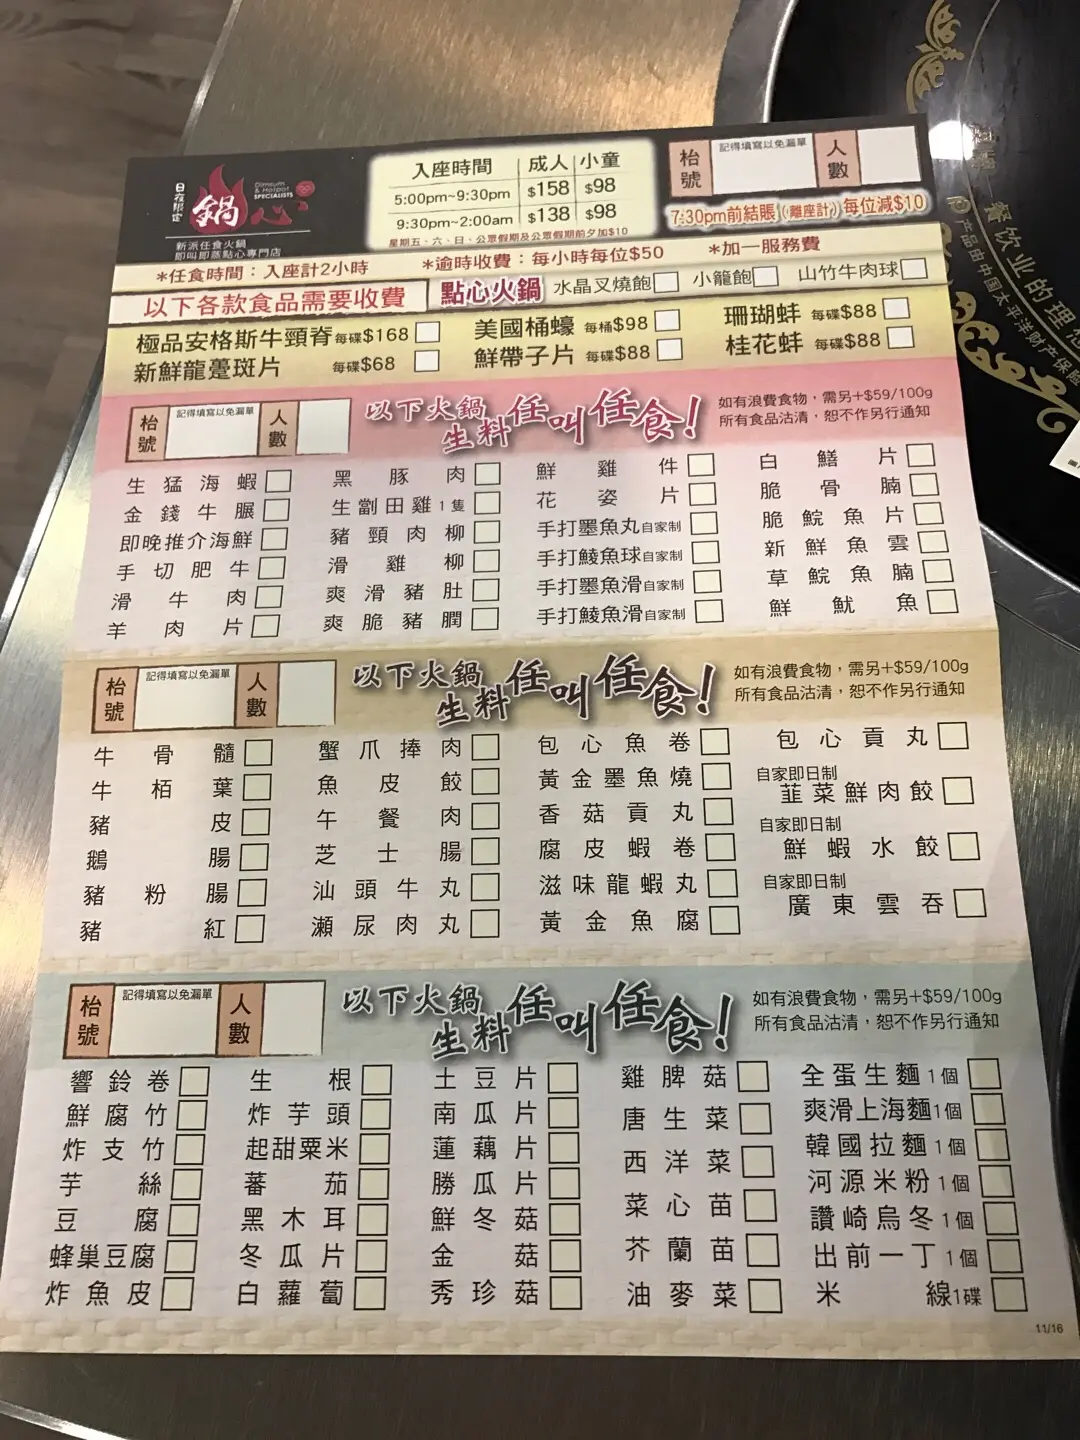 日夜限定
鍋心
Dimsum & Hotpot SPECIALISTS
新派任食火鍋
即叫即蒸點心專門店
入座時間 成人 小童
5:00pm~9:30pm $158 $98
9:30pm~2:00am $138 $98
星期五、六、日、公眾假期及公眾假期前夕加$10
枱號 記得填寫以免漏單 人數
7:30pm前結賬(離座計)每位減$10
*任食時間：入座計2小時 *逾時收費：每小時每位$50 *加一服務費
以下各款食品需要收費 點心火鍋 水晶叉燒飽 小籠飽 山竹牛肉球
極品安格斯牛頸脊 每碟$168 美國桶蠔 每桶$98 珊瑚蚌 每碟$88
新鮮龍躉斑片 每碟$68 鮮帶子片 每碟$88 桂花蚌 每碟$88
枱號 記得填寫以免漏單 人數 以下火鍋生料任叫任食!
如有浪費食物，需另+$59/100g
所有食品沽清，恕不作另行通知
生猛海蝦 黑豚肉 鮮雞件 白鱔片
金錢牛𦟌 生劏田雞1隻 花姿片 脆骨腩
即晚推介海鮮 豬頸肉柳 手打墨魚丸自家制 脆鯇魚片
手切肥牛 滑雞柳 手打鯪魚球自家制 新鮮魚雲
滑牛肉 爽滑豬肚 手打墨魚滑自家制 草鯇魚腩
羊肉片 爽脆豬膶 手打鯪魚滑自家制 鮮魷魚
枱號 記得填寫以免漏單 人數 以下火鍋生料任叫任食!
如有浪費食物，需另+$59/100g
所有食品沽清，恕不作另行通知
牛骨髓 蟹爪捧肉 包心魚卷 包心貢丸
牛栢葉 魚皮餃 黃金墨魚燒 自家即日制 韮菜鮮肉餃
豬皮 午餐肉 香菇貢丸 自家即日制 鮮蝦水餃
鵝腸 芝士腸 腐皮蝦卷 自家即日制 廣東雲吞
豬粉腸 汕頭牛丸 滋味龍蝦丸
豬紅 瀨尿肉丸 黃金魚腐
枱號 記得填寫以免漏單 人數 以下火鍋生料任叫任食!
如有浪費食物，需另+$59/100g
所有食品沽清，恕不作另行通知
響鈴卷 生根 土豆片 雞脾菇 全蛋生麵1個
鮮腐竹 炸芋頭 南瓜片 唐生菜 爽滑上海麵1個
炸支竹 起甜粟米 蓮藕片 西洋菜 韓國拉麵1個
芋絲 蕃茄 勝瓜片 菜心苗 河源米粉1個
豆腐 黑木耳 鮮冬菇 芥蘭苗 讚崎烏冬1個
蜂巢豆腐 冬瓜片 金菇 油麥菜 出前一丁1個
炸魚皮 白蘿蔔 秀珍菇 米線1碟
11/16
餐饮业的理想
产品由中国太平洋财产保险